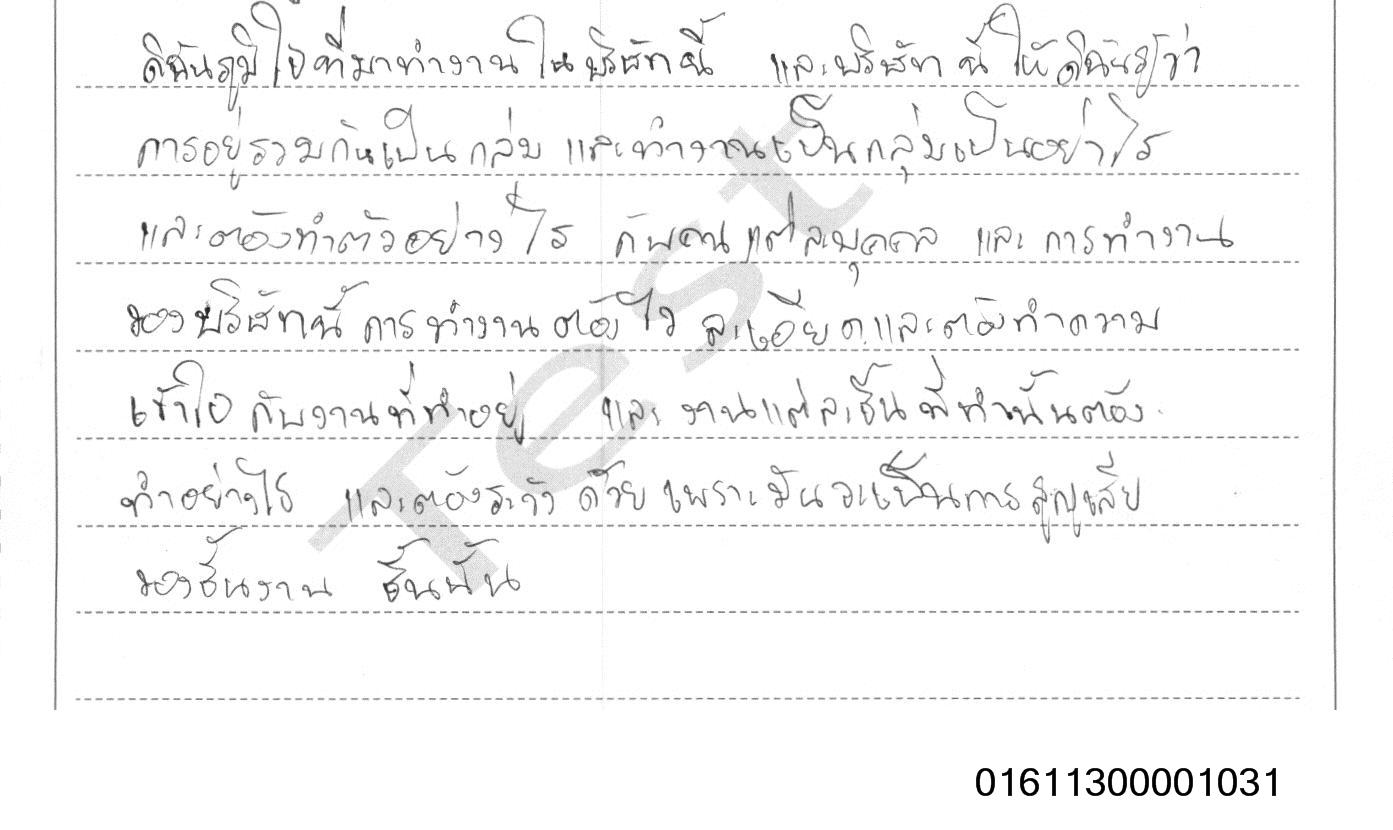 ดิฉันภูมิใจที่มาทำงานในบริษัทนี้ และบริษัทนี้ให้ดิฉันรู้ว่า
การอยู่รวมกันเป็นกลุ่ม และทำงานเป็นกลุ่มเป็นอย่าไร
และต้องทำตัวอย่างไร กับคนแต่ละบุคคล และการทำงาน
ของบริษัทนี้ การทำงานต้องไว ละเอียด และต้องทำความ
เข้าใจ กับงานที่ทำอยู่ และ งานแต่ละชิ้นที่ทำนั้นต้อง
ทำอย่างไร และต้องระวัง ด้วย เพราะมันจะเป็นการสูญเสีย
ของชิ้นงาน ชิ้นนั้น
Test
01611300001031